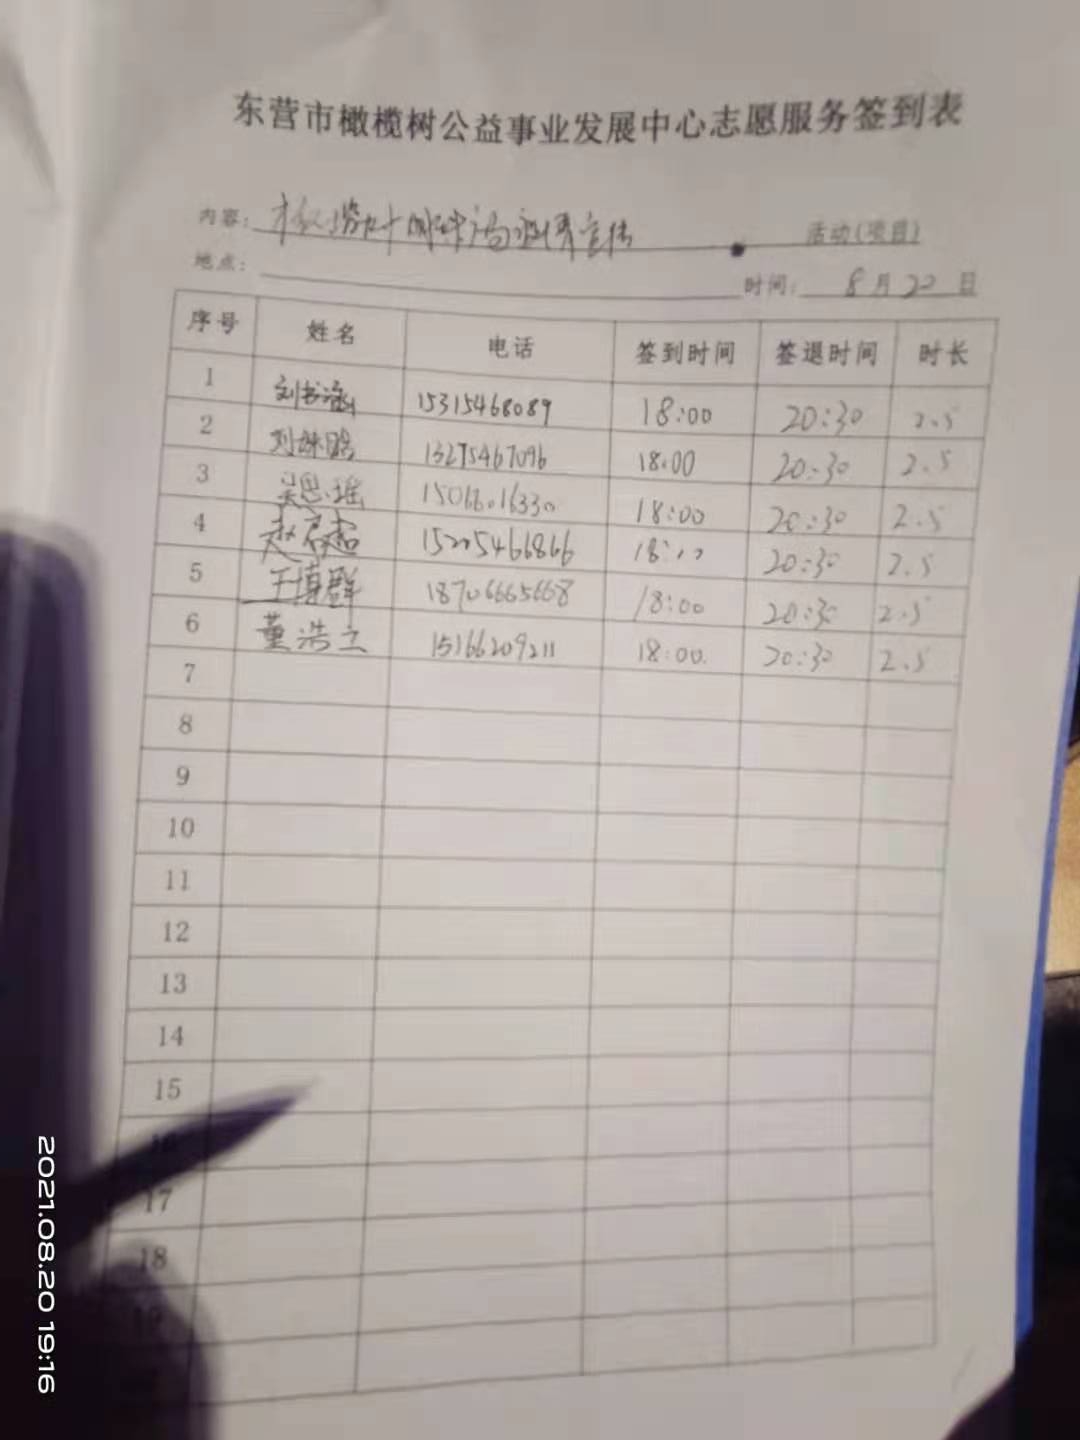 东营市橄榄树公益事业发展中心志愿服务签到表
内容: 宣传 活动(项目)
地点:
时间: 8月20日
序号 姓名 电话 签到时间 签退时间 时长
1 刘书涵 15315468089 18:00 20:30 2.5
2 13275467096 18:00 20:30 2.5
3 吴思瑶 15066016330 18:00 20:30 2.5
4 赵君超 15205466866 20:30 2.5
5 王博群 18706665668 18:00 20:30 2.5
6 董浩立 15166209211 18:00. 20:30 2.5
7
8
9
10
11
12
13
14
15
16
17
18
19
2021.08.20 19:16